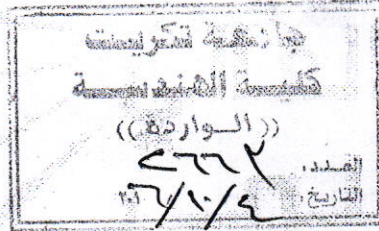 جامعة تكريت
كلية الهندسة
((الواردة))
العدد:
التاريخ: ٤/١٠/٢٠١٦